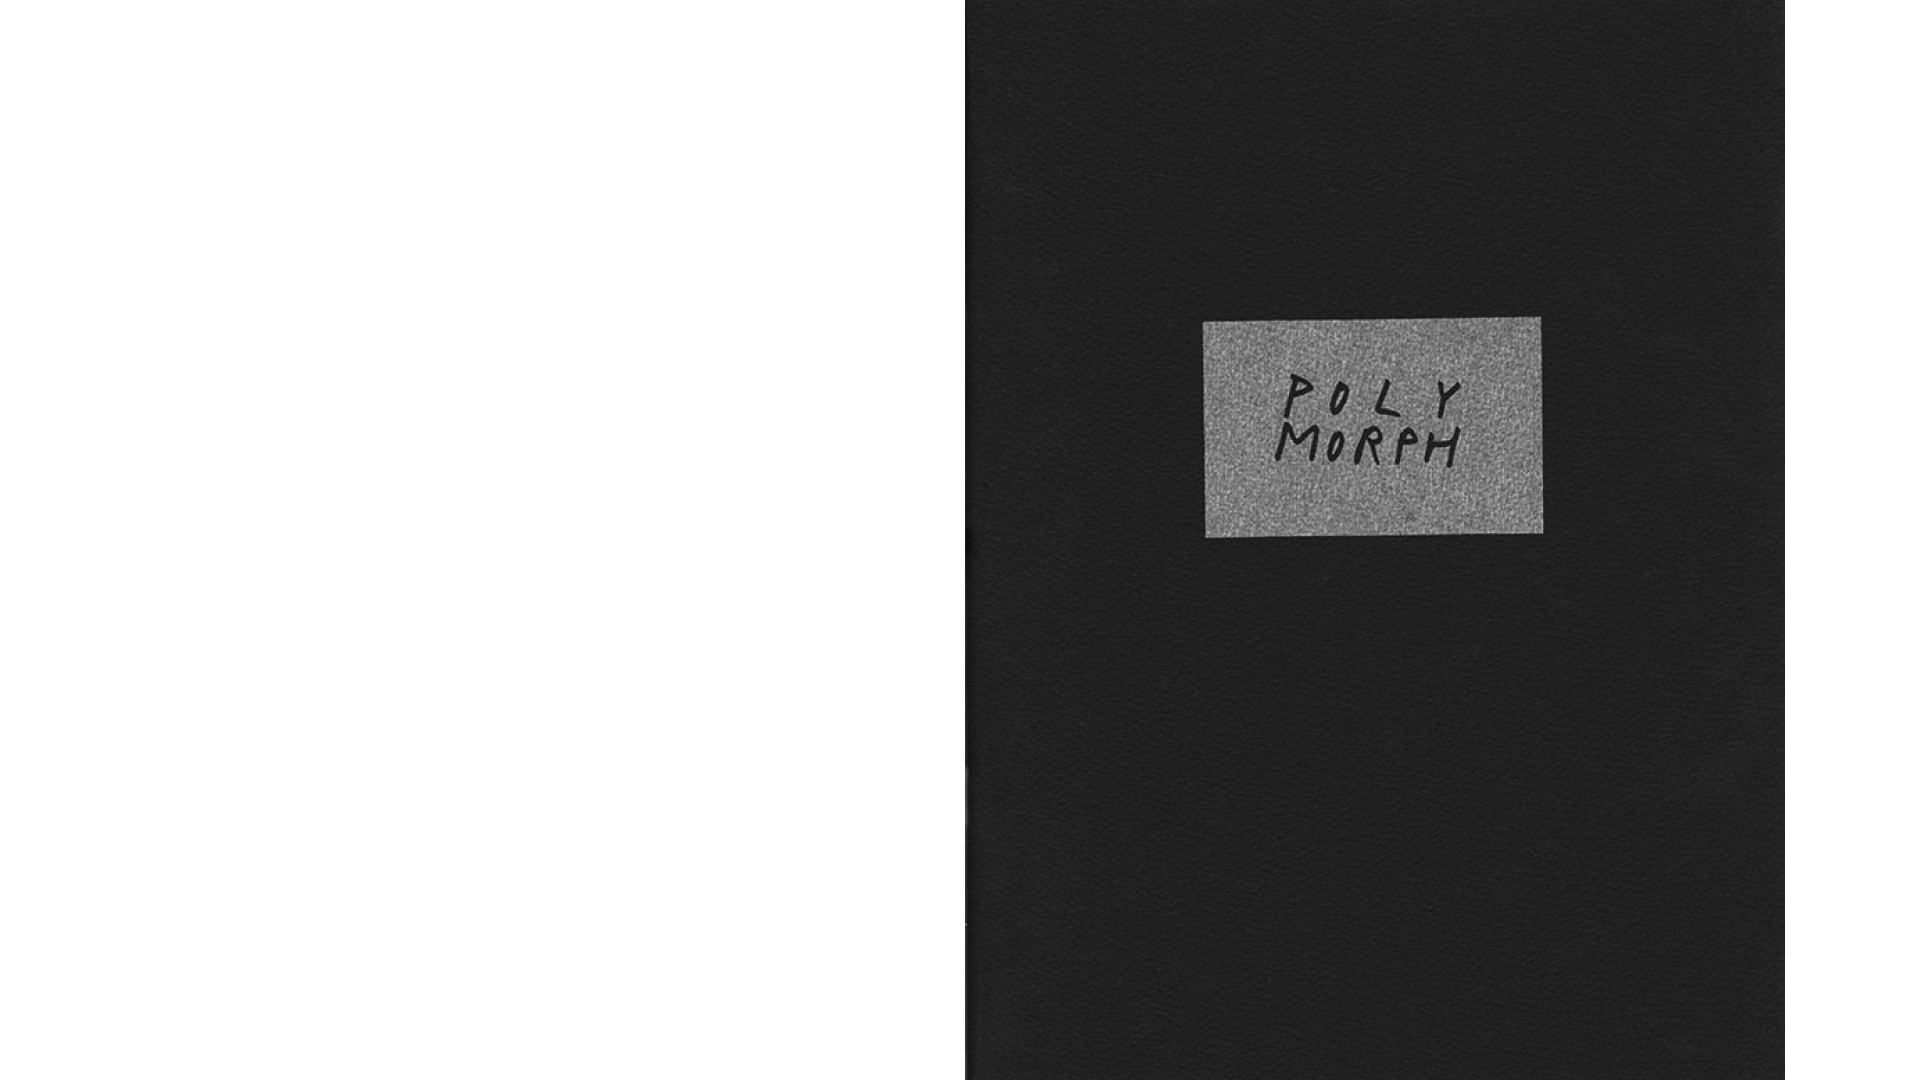 POLY
MORPH